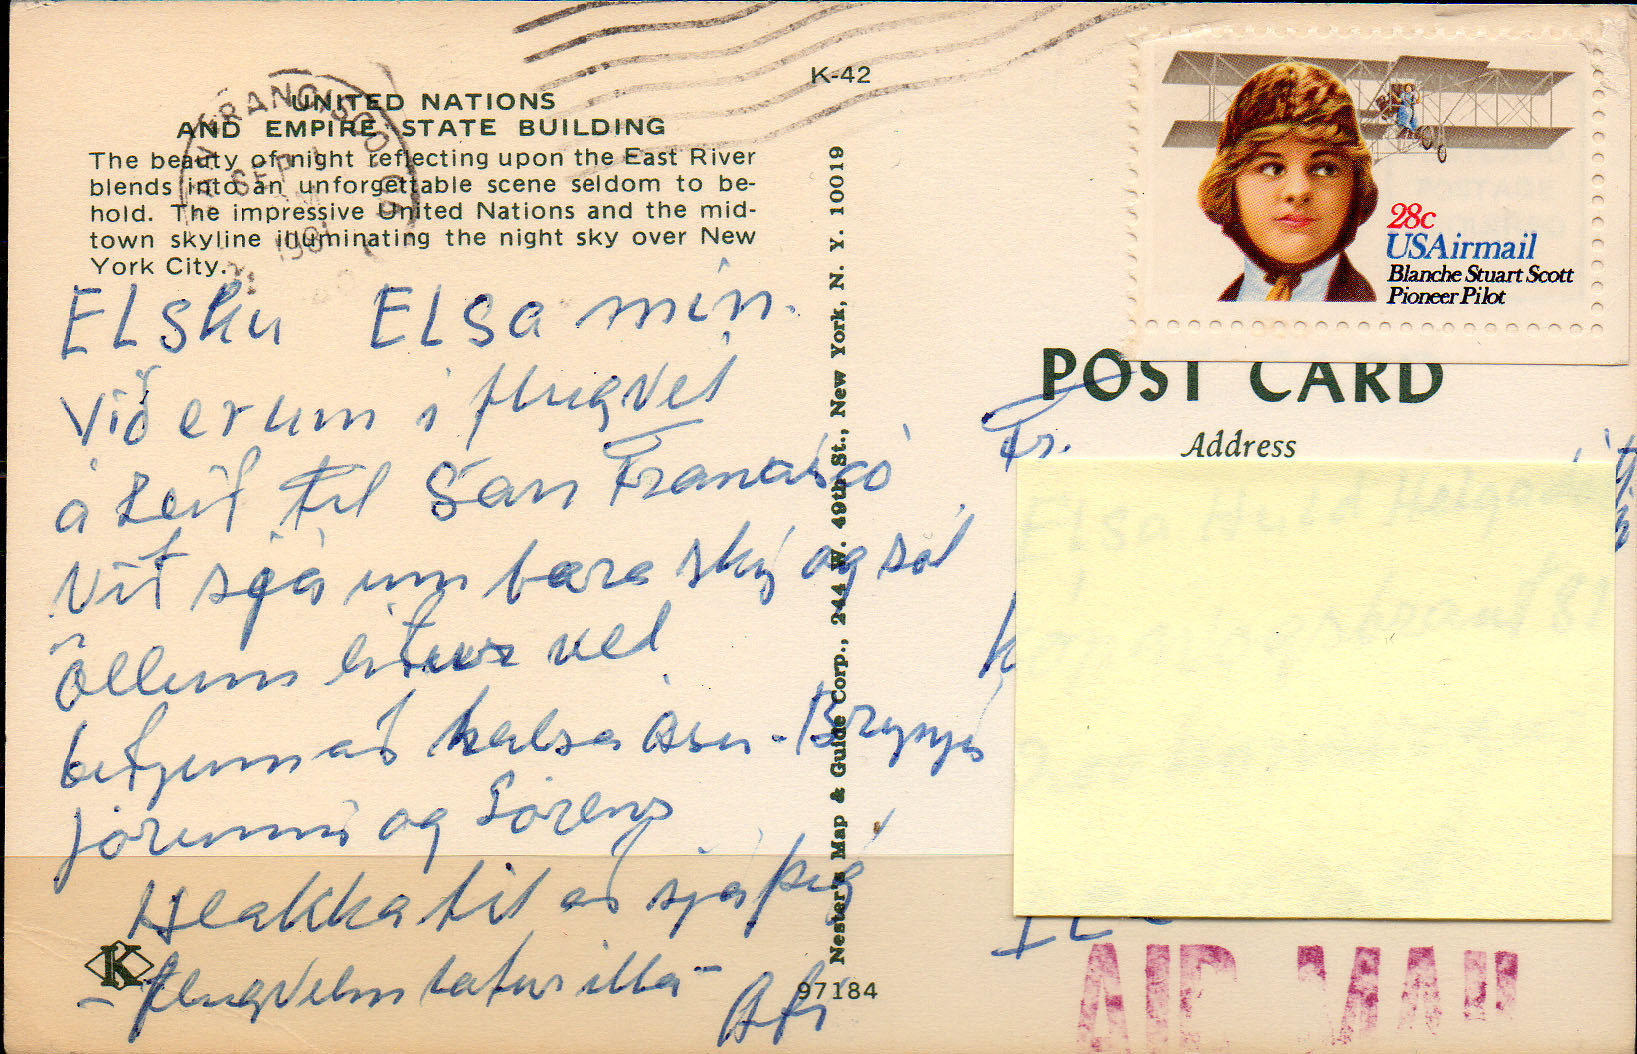 UNITED NATIONS
AND EMPIRE STATE BUILDING
K-42
The beauty of night reflecting upon the East River
blends into an unforgettable scene seldom to be-
hold. The impressive United Nations and the mid-
town skyline illuminating the night sky over New
York City.
SAN FRANCISCO
SEP
1981
28c
USAirmail
Blanche Stuart Scott
Pioneer Pilot
ELsku ELSa mín.
Við erum í flugvél
á leið til San Francisco
Við sjáum bara ský og sól
Öllum líður vel
biðjum að heilsa Ásu - Brynju
Jórunni og Sören
Hlakka til að sjá þig
- flugvélin lætur illa -
Afi
97184
K
Nester's Map & Guide Corp., 244 W. 49th St., New York, N. Y. 10019
POST CARD
Address
Fr.
AIR MAIL